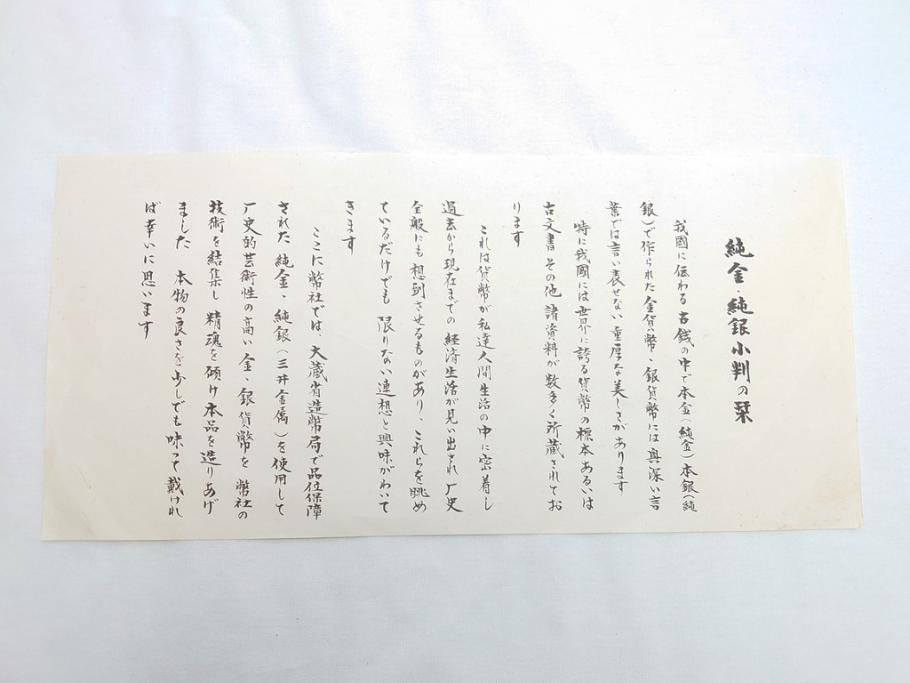 純金・純銀小判の栞
我國に伝わる古銭の中で本金(純金)本銀(純
銀)で作られた金貨幣、銀貨幣には奥深い言
葉では言い表せない重厚な美しさがあります
特に我國には世界に誇る貨幣の標本あるいは
古文書 その他 諸資料が数多く所蔵されてお
ります
これは貨幣が私達人間生活の中に密着し
過去から現在までの 経済生活が見い出され 厂史
全般にも想到させるものがあり、これらを眺め
ているだけでも 限りない連想と興味がわいて
きます
ここに幣社では、大蔵省造幣局で品位保障
された純金、純銀(三井金属)を使用して
厂史的芸術性の高い金、銀貨幣を 幣社の
技術を結集し 精魂を傾け本品を造りあげ
ました 本物の良さを少しでも味って戴けれ
ば幸いに思います